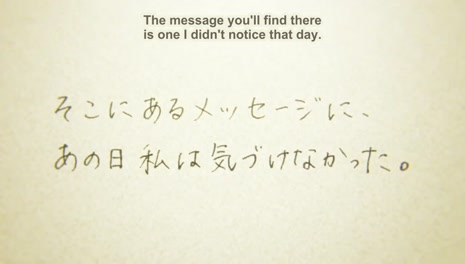 The message you'll find there
is one I didn't notice that day.
そこにあるメッセージに、
あの日私は気づけなかった。